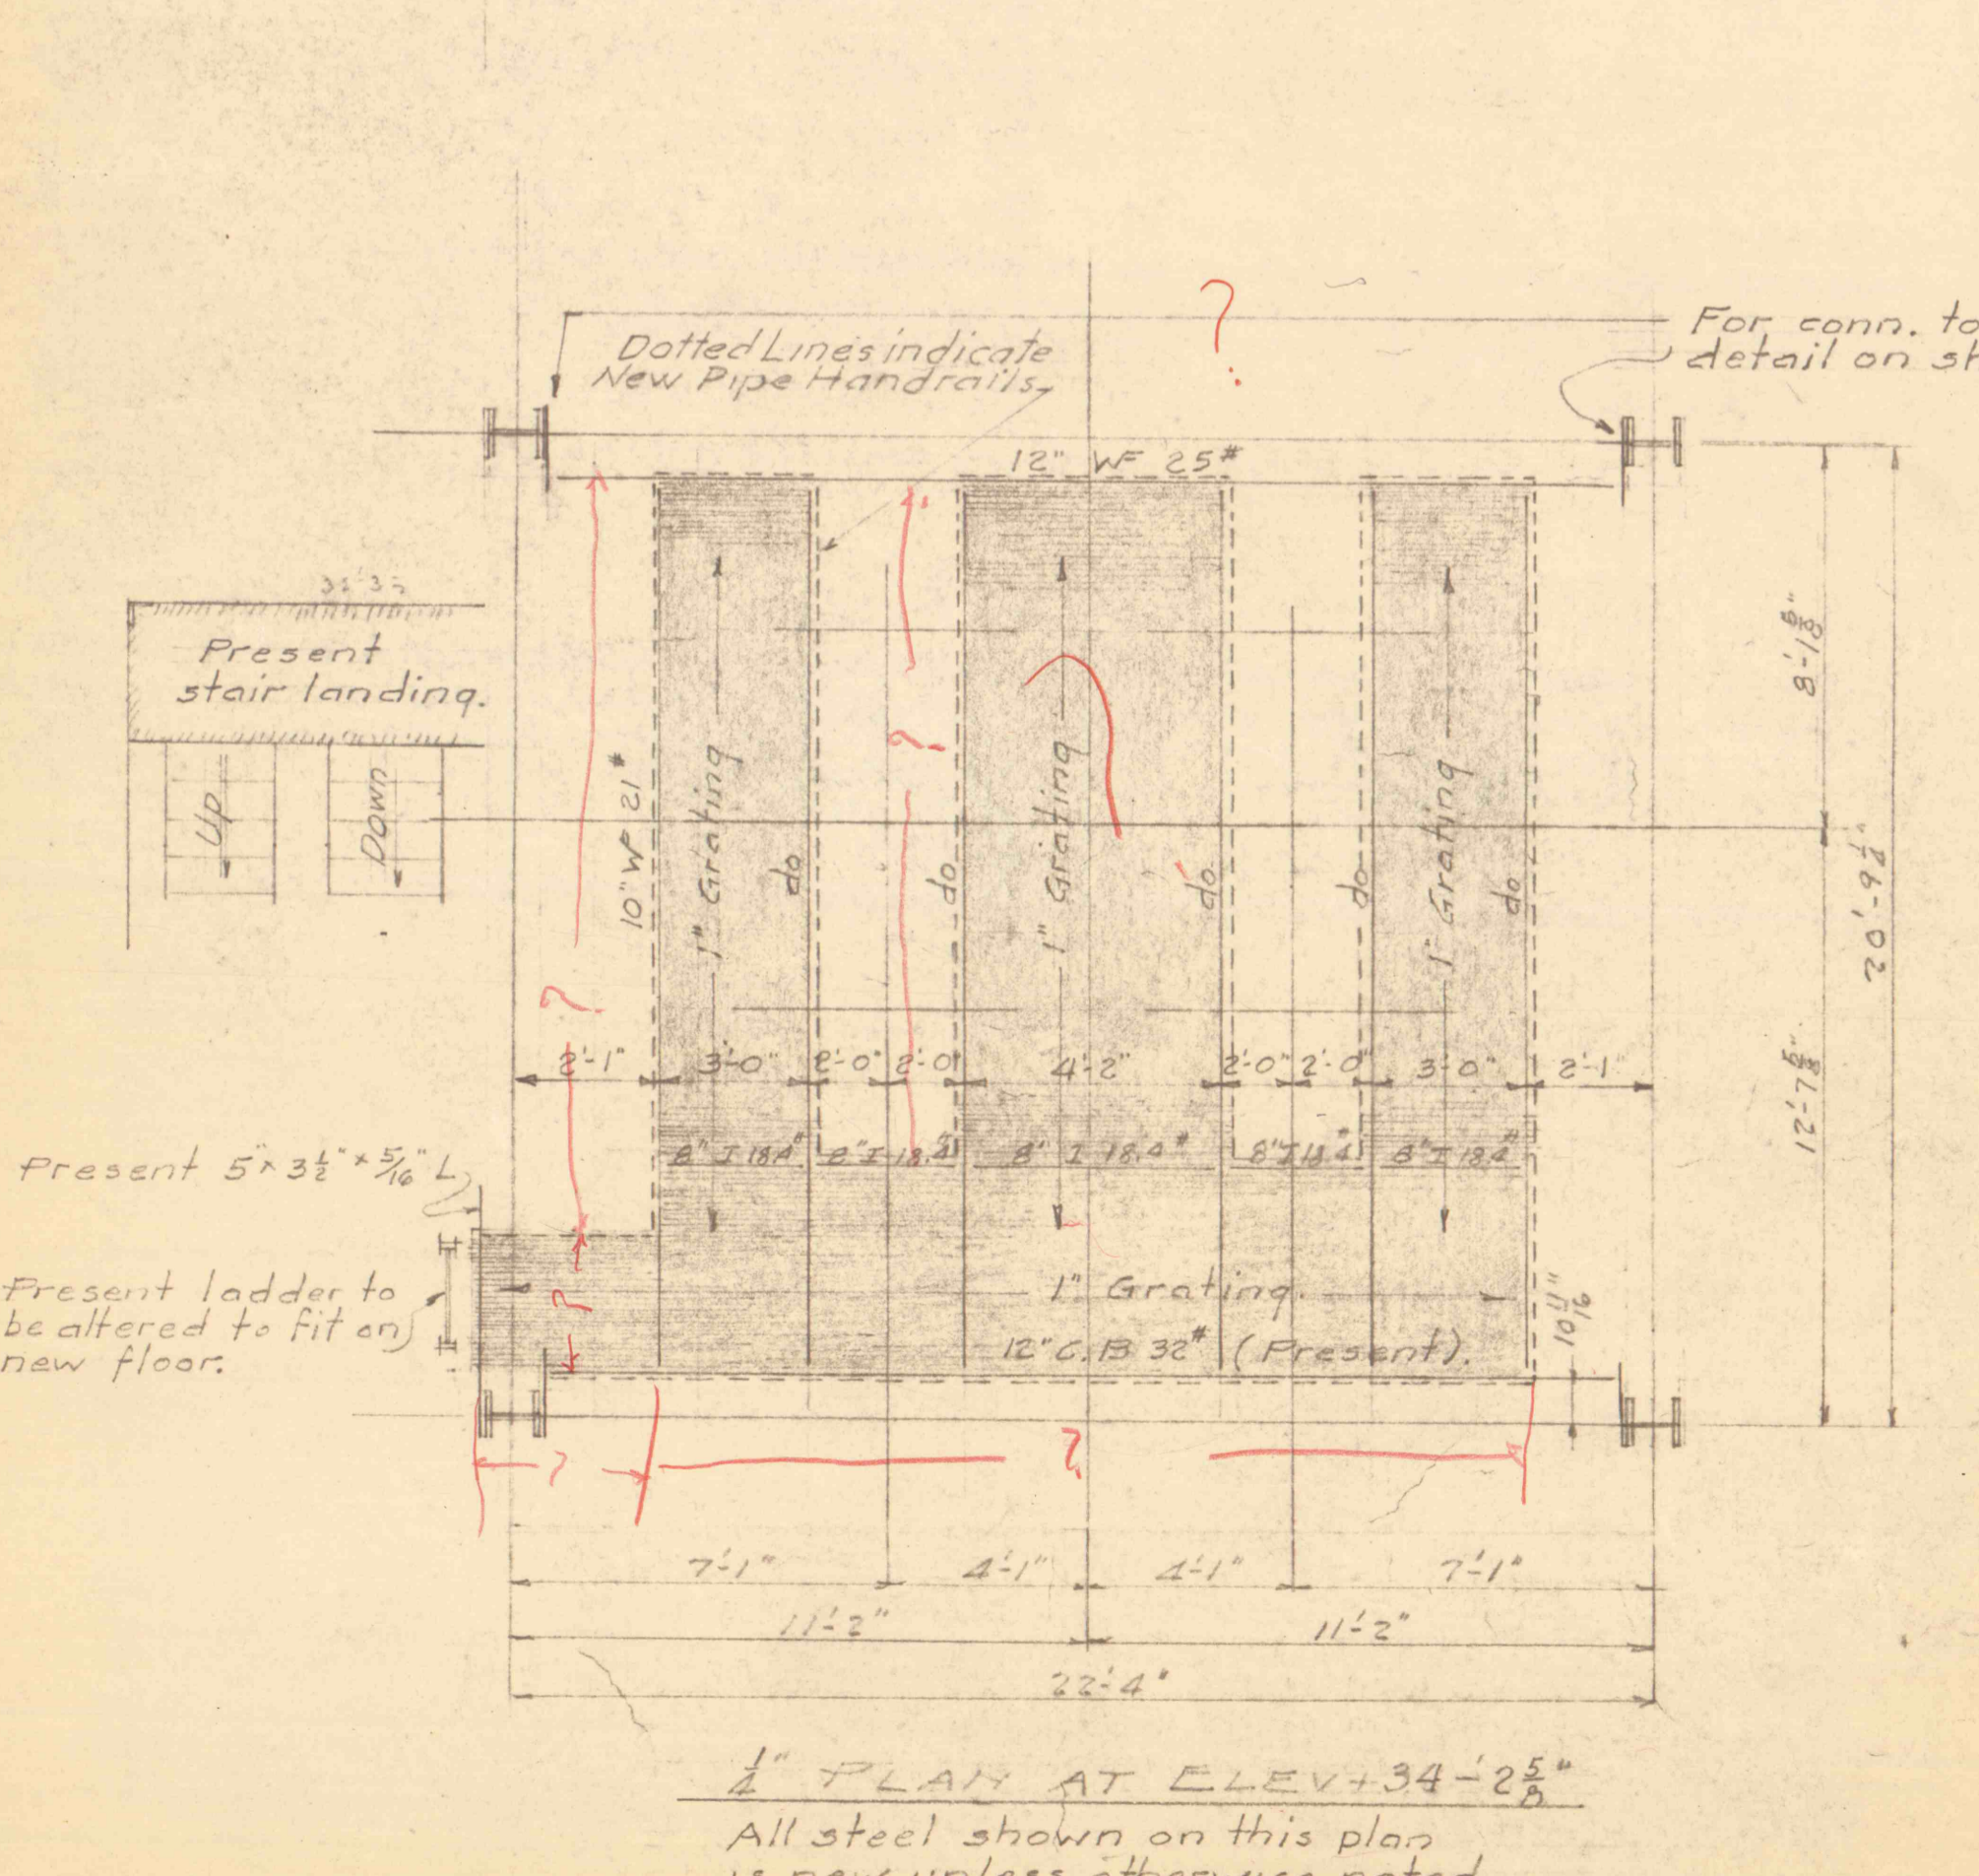 ?
For conn. to
detail on sh
Dotted Lines indicate
New Pipe Handrails.
12" WF 25#
Present
stair landing.
Up
Down
10" WF 21#
1" Grating
do
do
1" Grating
do
do
1" Grating
do
?
?
8'-1 5/8"
20'-9 1/4"
12'-7 5/8"
2'-1"
3'-0"
2'-0"
2'-0"
4'-2"
2'-0"
2'-0"
3'-0"
2'-1"
8" I 18.4#
8" I 18.4#
8" I 18.4#
8" I 18.4#
8" I 18.4#
Present 5" x 3 1/2" x 5/16" L
Present ladder to
be altered to fit on
new floor.
?
1" Grating.
12" C.B 32# (Present).
10 11/16"
?
?
7'-1"
4'-1"
4'-1"
7'-1"
11'-2"
11'-2"
22'-4"
1/4" PLAN AT ELEV + 34'-2 5/8"
All steel shown on this plan
is new unless otherwise noted